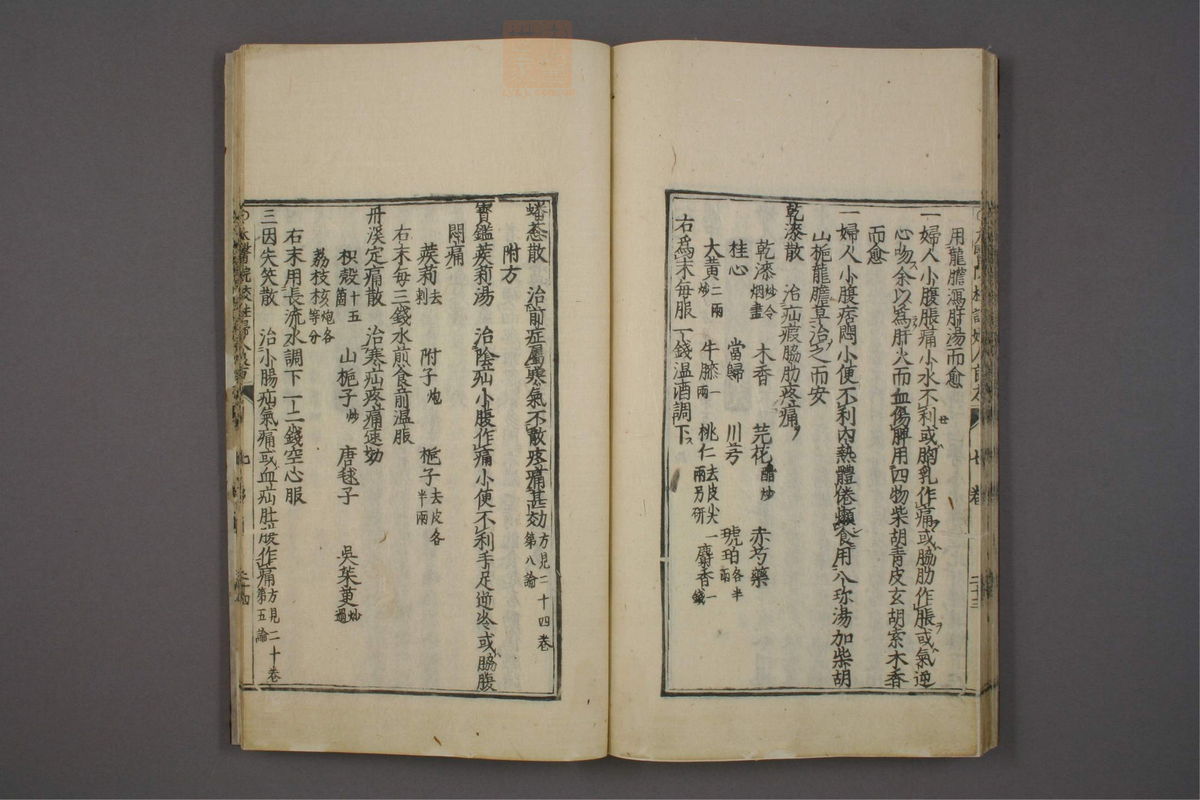 用龍膽瀉肝湯而愈
一婦人小腹脹痛小水不利或胸乳作痛或脇肋作脹或氣逆
心吻余以爲肝火而血傷脾用四物柴胡青皮玄胡索木香
而愈
一婦人小腹痞悶小便不利內熱體倦懶食用八珍湯加柴胡
山梔龍膽草治之而安
乾漆散 治疝瘕脇肋疼痛
乾漆炒令烟盡 木香 芫花醋炒 赤芍藥
桂心 當歸 川芎 琥珀各半兩
大黃二兩炒 牛膝一兩 桃仁一兩去皮尖另研 麝香一錢
右爲末每服一錢溫酒調下
七卷 二十三
蟠葱散 治前症屬寒氣不散疼痛甚効方見二十四卷第八論
附方
寶鑑蒺莉湯 治陰疝小腹作痛小便不利手足逆冷或脇腹
悶痛
蒺莉去刺 附子炮 梔子去皮各半兩
右末每三錢水煎食前溫服
丹溪定痛散 治寒疝疼痛速効
枳殼十五箇 山梔子炒 唐毬子 吳茱萸炒過
荔枝核炮各等分
右末用長流水調下一二錢空心服
三因失笑散 治小腸疝氣痛或血疝肚腹作痛方見二十卷第五論